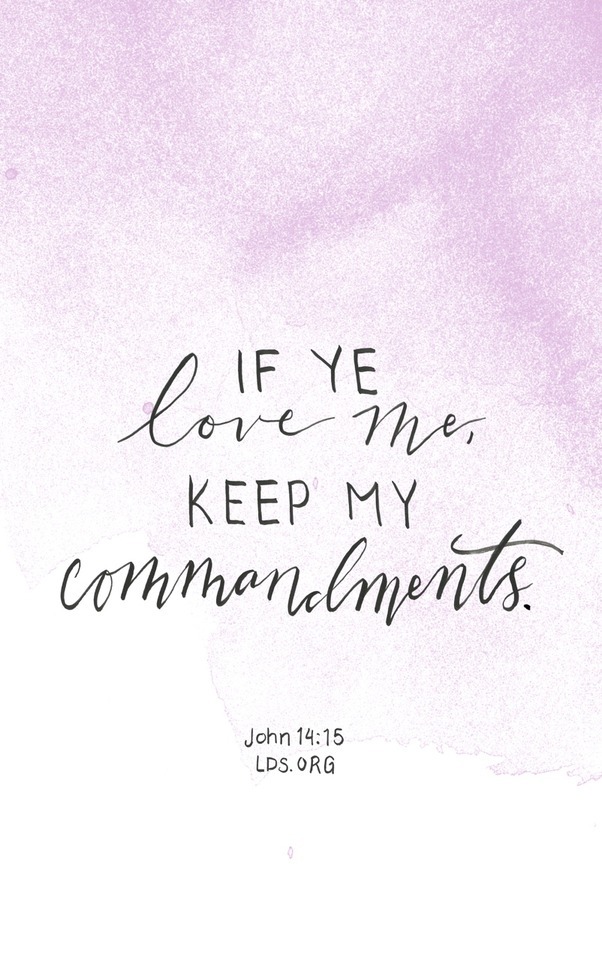 IF YE
love me,
KEEP MY
commandments.
John 14:15
LDS.ORG